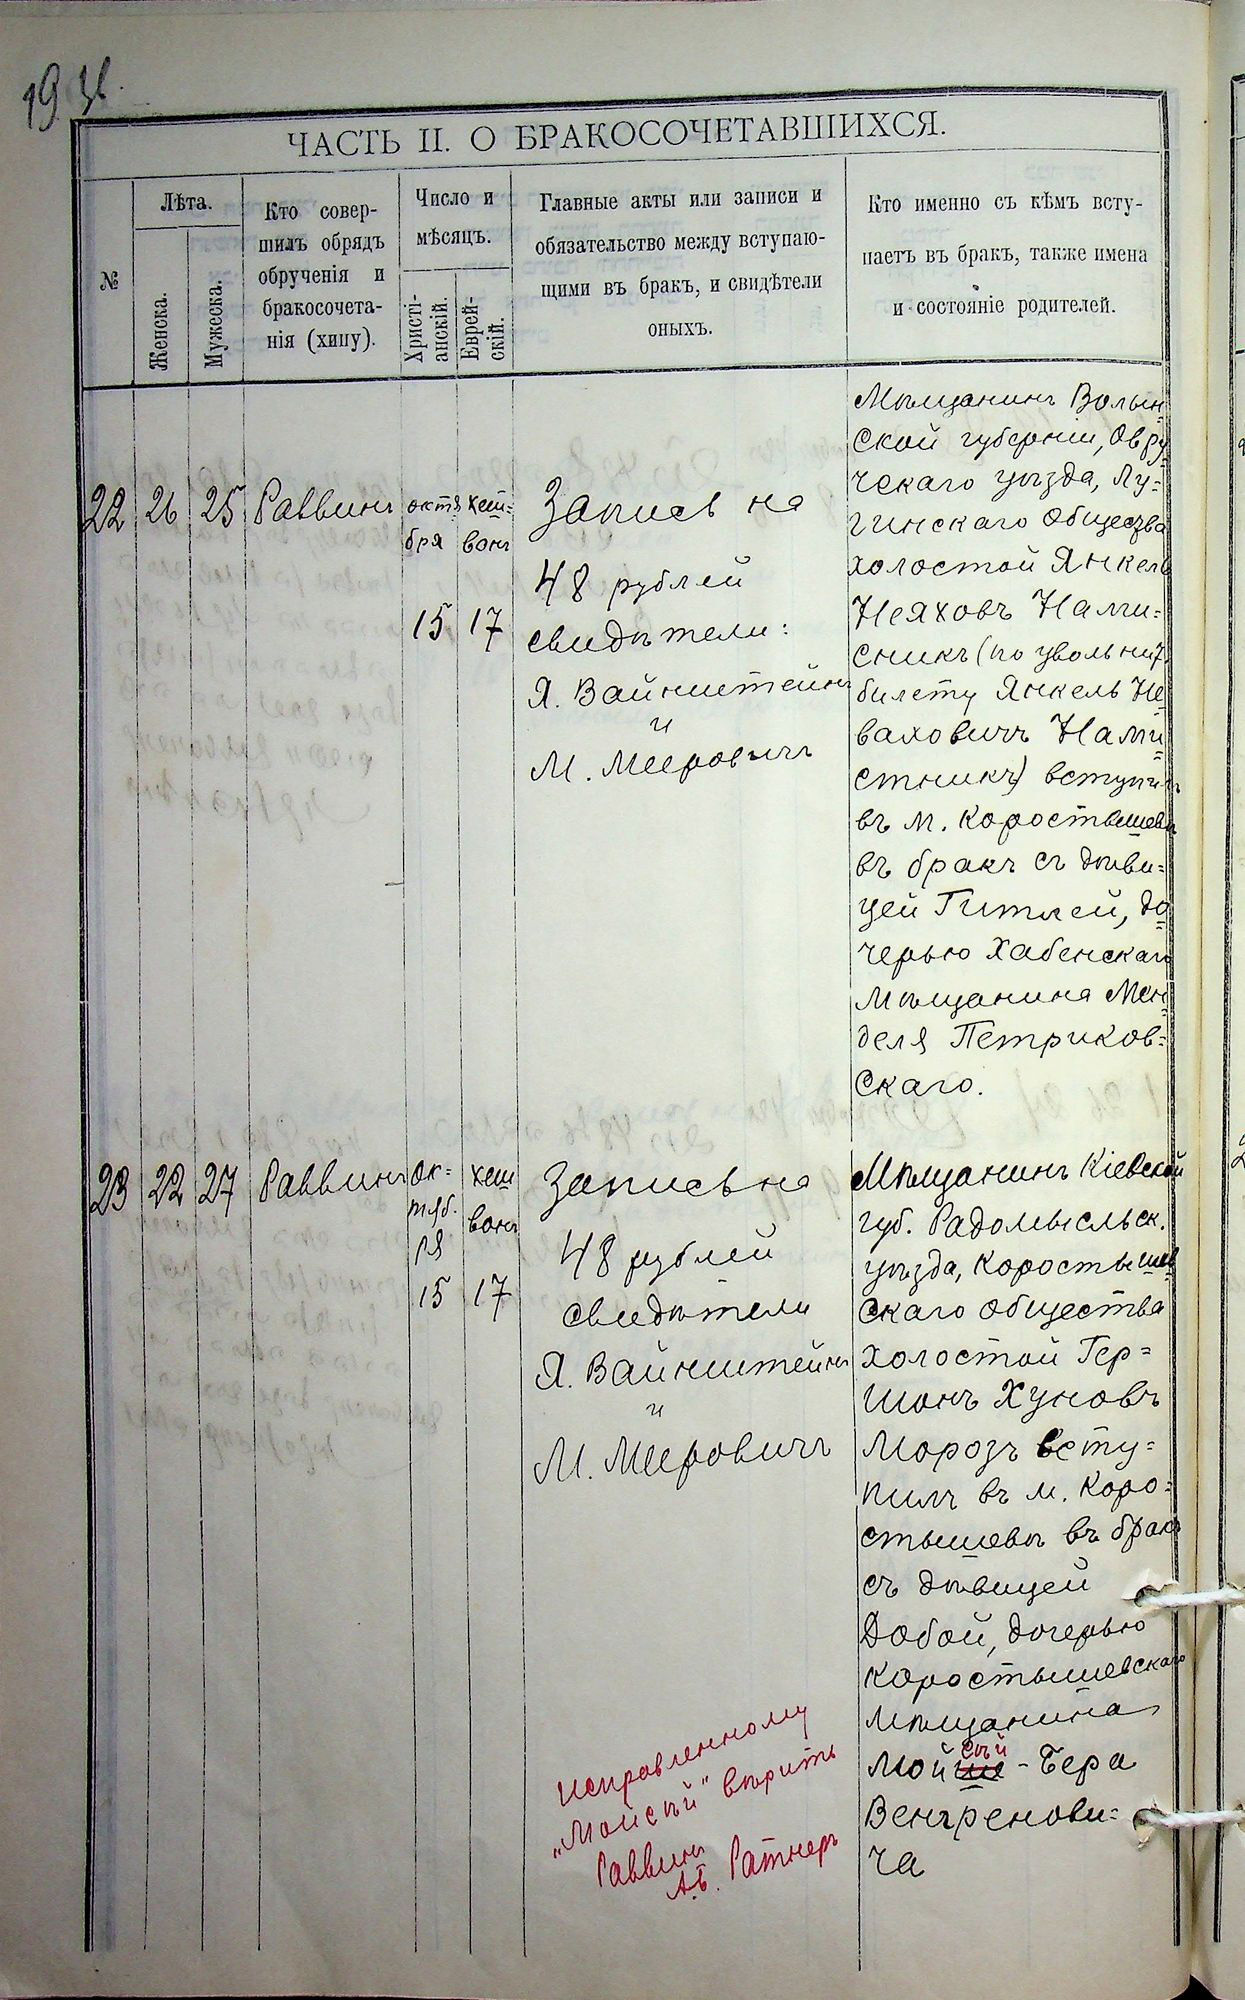 ЧАСТЬ II. О БРАКОСОЧЕТАВШИХСЯ.
№
Лѣта.
Женска.
Мужеска.
Кто совер-
шилъ обрядъ
обрученія и
бракосочета-
нія (хипу).
Число и
мѣсяцъ.
Христі-
анскій.
Еврей-
скій.
Главные акты или записи и
обязательство между вступаю-
щими въ бракъ, и свидѣтели
оныхъ.
Кто именно съ кѣмъ всту-
паетъ въ бракъ, также имена
и состояніе родителей.
22
26
25
Раввинъ
октя
бря
15
хеш=
вонъ
17
Запись на
48 рублей
свидѣтели:
Я. Вайнштейнъ
и
М. Мееровичъ
Мѣщанинъ Волын=
ской губерніи, Овру=
чскаго уѣзда, Лу=
гинскаго Общества
холостой Янкель
Неяховъ Нами=
сникъ (по увольнит.
билету Янкель Не=
ваховичъ Намѣ=
стникъ) вступилъ
въ м. Коростышевѣ
въ бракъ съ дѣви=
цей Гитлей, до=
черью Хабенскаго
мѣщанина Мен=
деля Петриков=
скаго.
23
22
27
Раввинъ
Ок=
тяб.
ря
15
хеш
вонъ
17
Запись на
48 рублей
свидѣтели
Я. Вайнштейнъ
и
М. Мееровичъ
Мѣщанинъ Кіевской
губ. Радомысльск.
уѣзда, Коростышев
скаго Общества
холостой Гер=
шонъ Хуновъ
Морозъ всту=
пилъ въ м. Коро=
стышевѣ въ бракъ
съ дѣвицей
Добой, дочерью
Коростышевскаго
мѣщанина
сѣй
Мойше-Бера
Венгренови=
ча
Исправленному
"Мойсѣй" вѣрить
Раввинъ
А.Б. Ратнеръ